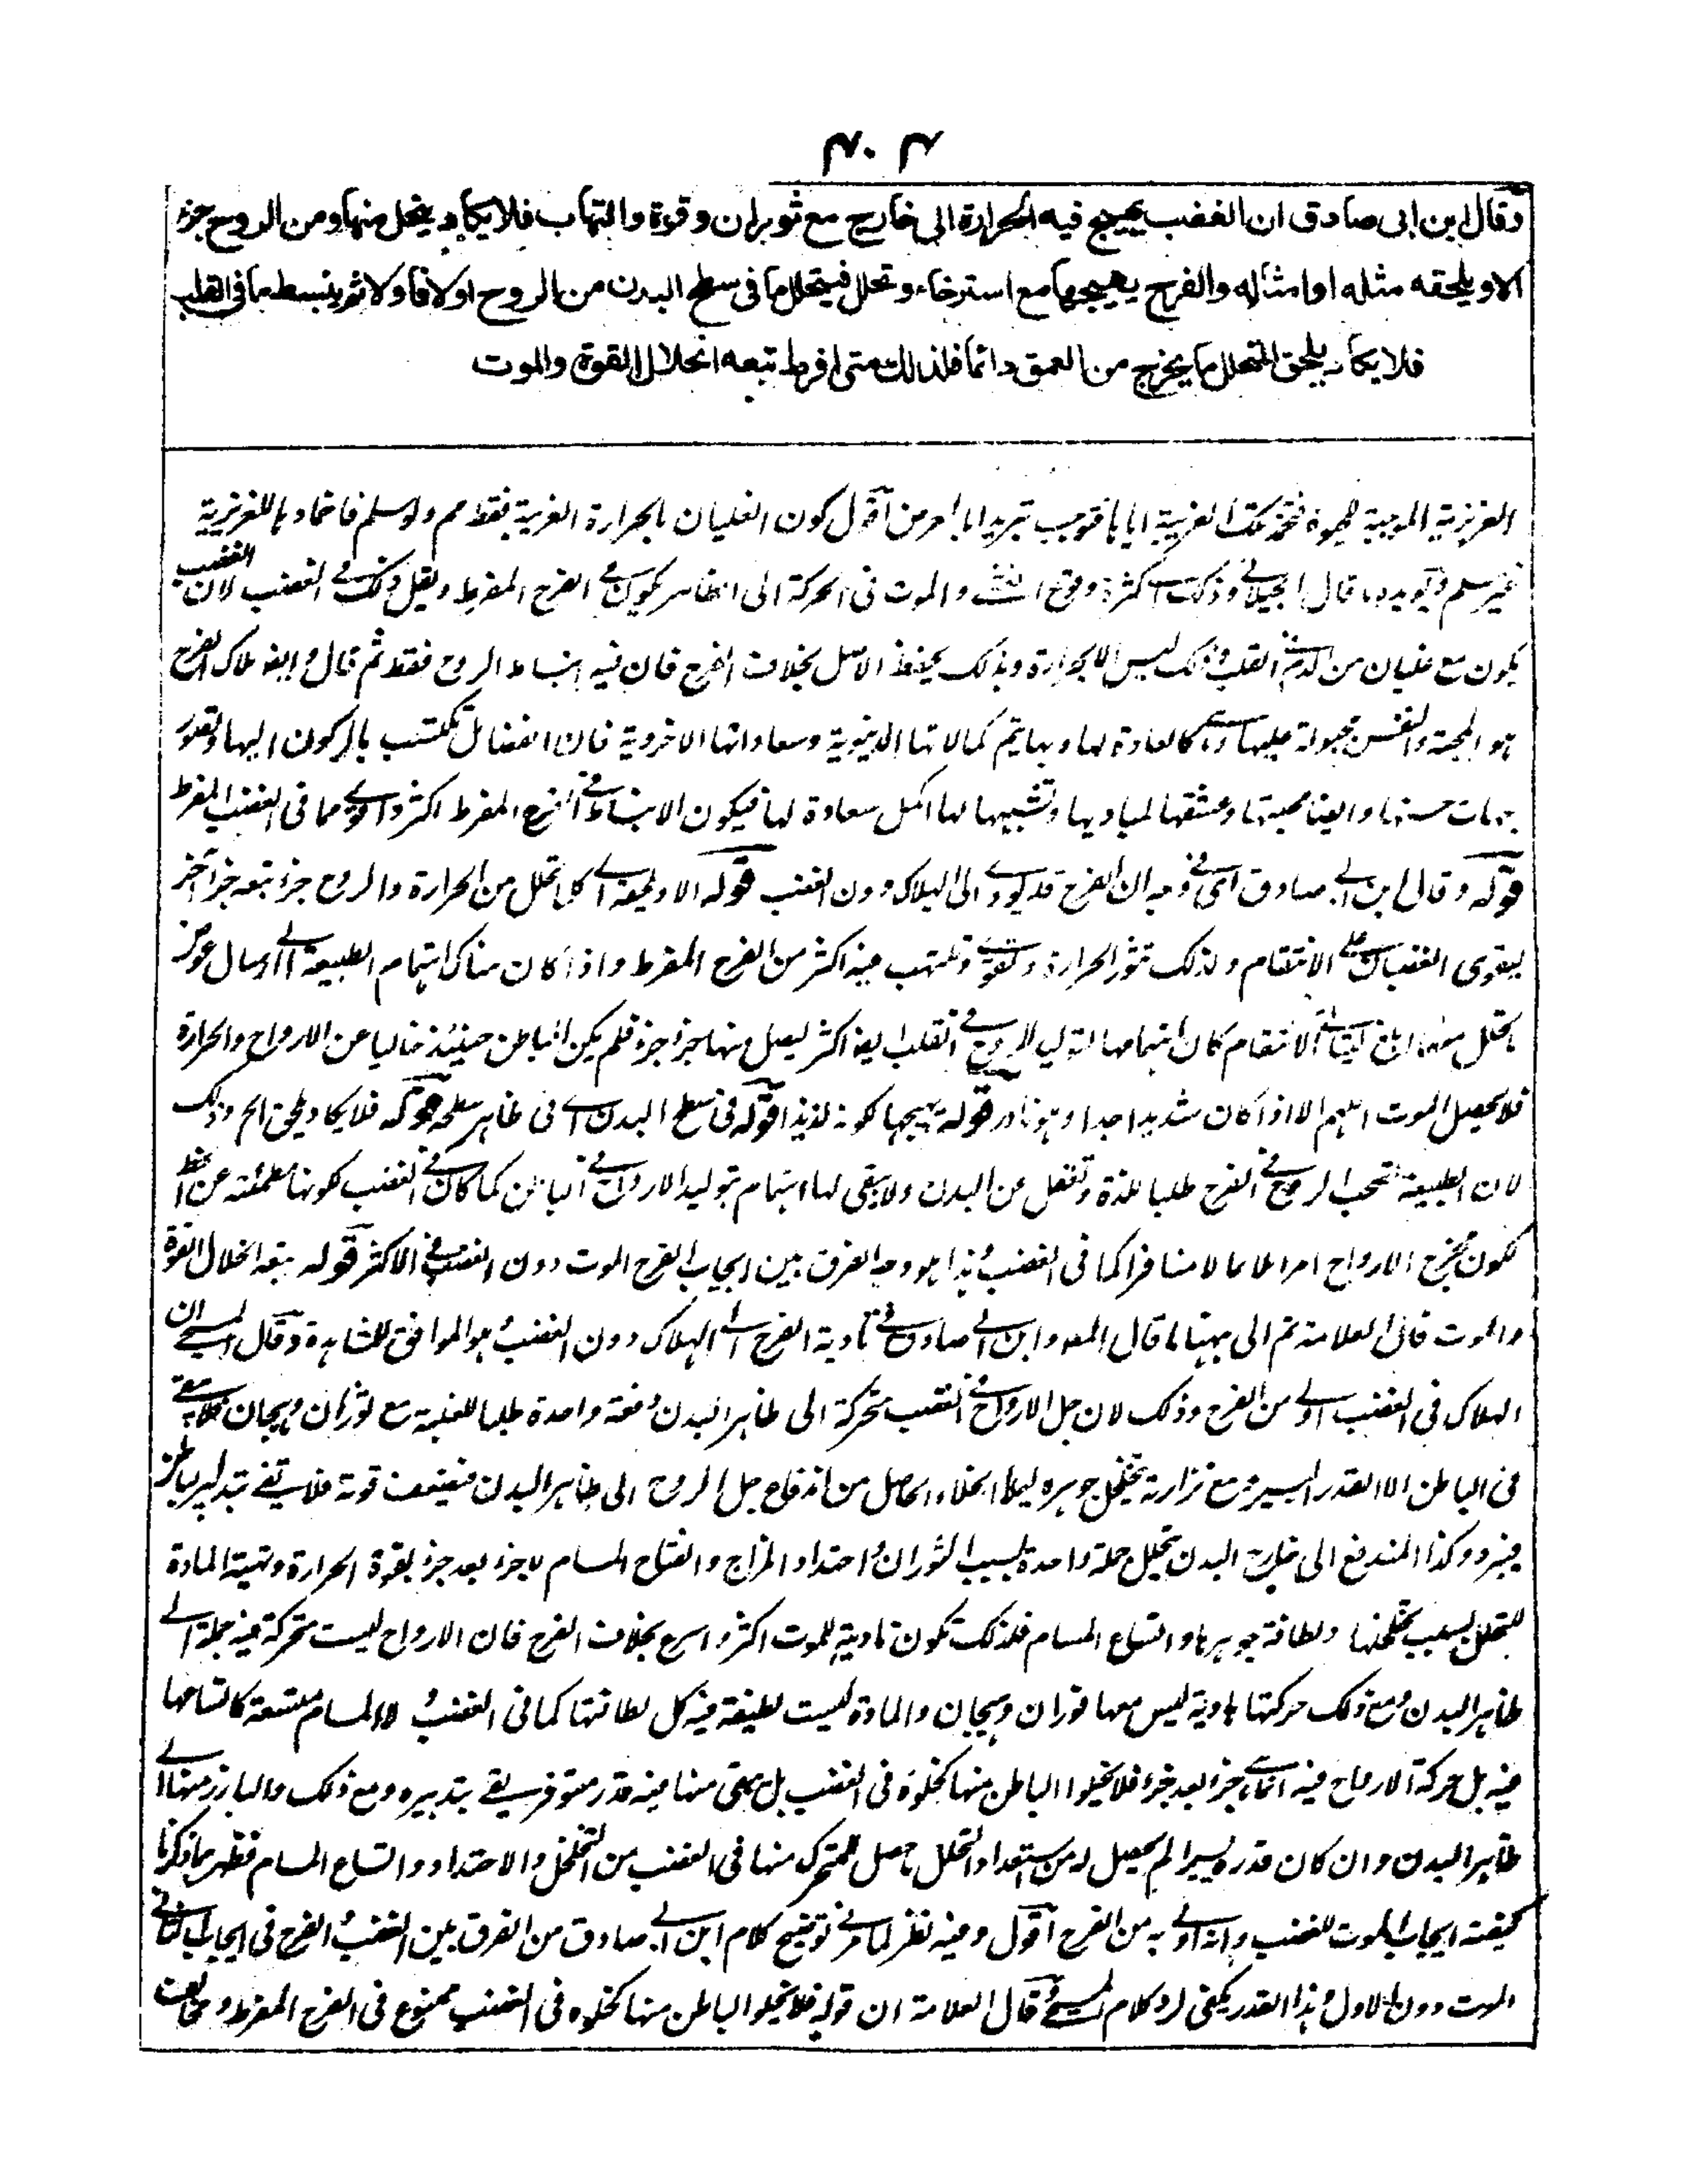 ٣٠٣
وقال ابن ابى صادق ان الغضب يهيج فيه الحرارة الى خارج مع ثوران وقوة والتهاب فلا يكاد ينحل منها ومن الروح جزء
الا ويلحقه مثله او امثاله والفرح يهيجها مع استرخاء وتحلل فيتحلل ما فى سطح البدن من الروح اولا فاولا ثم ينبسط ما فى القلب
فلا يكاد يلحق المتحلل ما يخرج من العمق دائما فلذلك متى افرط تبعه انحلال القوة والموت
الغريزية الموجبة للحيوة فتخمد تلك الغريبة اياها فتوجب تبريدا بالعرض اقول كون الغليان بالحرارة الغريبة فقط مم ولو سلم فاخمادها للغريزية
غير مسلم ويؤيده ما قال الجيلانى وذلك كثرة وقوع الغشى والموت فى الحركة الى الظاهر يكون فى الفرح المفرط ويقل ذلك فى الغضب لان الغضب
يكون مع غليان من دم القلب وذلك ليس الا بحرارة وبذلك يحفظ الاصل بخلاف الفرح فان فيه انبساط الروح فقط ثم قال وايضا ملاك الفرح
هو المحبة والنفس مجبولة عليها كالعادة لها وبها يتم كمالاتها الدنيوية وسعاداتها الاخروية فان الفضائل تكتسب بالركون اليها وتصور
جهات حسنها وايضا محبتها وعشقها لمباديها وتشبيهها لها اكمل سعادة لها فيكون الانبساط فى الفرح المفرط اكثر واقوى مما فى الغضب المفرط
قوله وقال ابن ابى صادق اى فى وجه ان الفرح قد يؤدى الى الهلاك دون الغضب قوله الا ويلحقه اى كلما تحلل من الحرارة والروح جزء تبعه جزء آخر
ليقوى الغضبان على الانتقام ولذلك تثور الحرارة وتقوى وتلتهب فيه اكثر من الفرح المفرط واذا كان هناك اهتمام الطبيعة الى ارسال عوض
ما يتحلل منهما الانتقام كان اهتمامها لتوليد الروح فى القلب ايضا اكثر ليصل منها جزء جزء فلم يكن الباطن حينئذ خاليا عن الارواح والحرارة
فلا يحصل الموت اللهم الا اذا كان شديدا جدا وهو نادر قوله يهيجها كونه لذيذا قوله فى سطح البدن اى فى ظاهر سطحه قوله فلا يكاد يلحق الخ وذلك
لان الطبيعة تصحب الروح فى الفرح طلبا للذة وتغفل عن البدن ولا يبقى لها اهتمام بتوليد الارواح فى الباطن كما كان فى الغضب لكونها مطمئنة عن الحفظ
لكون مخرج الارواح امرا ملائما لا منافرا كما فى الغضب هذا هو وجه الفرق بين ايجاب الفرح الموت دون الغضب فى الاكثر قوله تبعه انحلال القوة
والموت قال العلامة ثم الى ههنا ما قال المص وابن ابى صادق فى تادية الفرح الى الهلاك دون الغضب هو الموافق للمشاهدة وقال المسيحى ان
الهلاك فى الغضب اولى من الفرح وذلك لان جل الارواح فى الغضب متحركة الى ظاهر البدن دفعة واحدة طلبا للغلبة مع ثوران وهيجان فلا يبقى
فى الباطن الا القدر اليسير ومع نزارته يتخلخل جوهره ليملأ الخلاء الحاصل من اندفاع جل الروح الى ظاهر البدن فيضعف قوته فلا يفى بتدبير باطن
فيبرد وكذا المندفع الى خارج البدن يتحلل جملة واحدة بسبب الثوران واحتداد المزاج وانفتاح المسام لا جزء بعد جزء لقوة الحرارة وتهيئة المادة
للتحلل بسبب تخلخلها ولطافة جوهرها واتساع المسام فلذلك تكون تادية للموت اكثر واسرع بخلاف الفرح فان الارواح ليست متحركة فيه جملة الى
ظاهر البدن ومع ذلك حركتها هادية ليس معها فوران وهيجان والمادة ليست لطيفة فيه كل لطافتها كما فى الغضب ولا المسام متسعة كاتساعها
فيه بل حركة الارواح فيه انما هى جزء بعد جزء فلا يخلو الباطن منها كخلوه فى الغضب بل يبقى منها فيه قدر متوفر يفى بتدبيره ومع ذلك والبارز منها الى
ظاهر البدن وان كان قدره يسيرا لم يحصل له من استعداد التحلل ما حصل للمتحرك منها فى الغضب من التخلخل والاحتداد واتساع المسام فظهر بما ذكرنا
كيفية ايجاب الموت للغضب وانه اولى به من الفرح اقول وفيه نظر لما مر فى توضيح كلام ابن ابى صادق من الفرق بين الغضب والفرح فى ايجاب الثانى
الموت دون الاول وهذا القدر يكفى لرد كلام المسيحى قال العلامة ان قوله فلا يخلو الباطن منها كخلوه فى الغضب ممنوع فى الفرح المفرط و